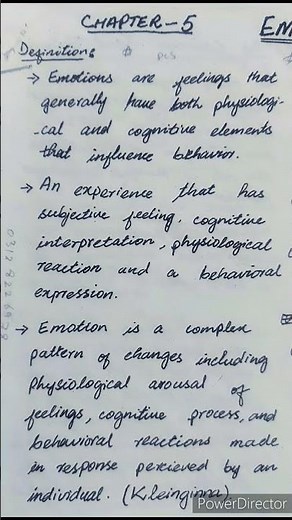 CHAPTER-5
EM
Definitions
→ Emotions are feelings that
generally have both physiologi-
-cal and cognitive elements
that influence behavior.
→ An experience that has
subjective feeling, cognitive
interpretation, physiological
reaction and a behavioral
expression.
→ Emotion is a complex
pattern of changes including
physiological arousal of
feelings, cognitive process, and
behavioral reactions made
in response percieved by an
individual. (Kleinginna)
PowerDirector